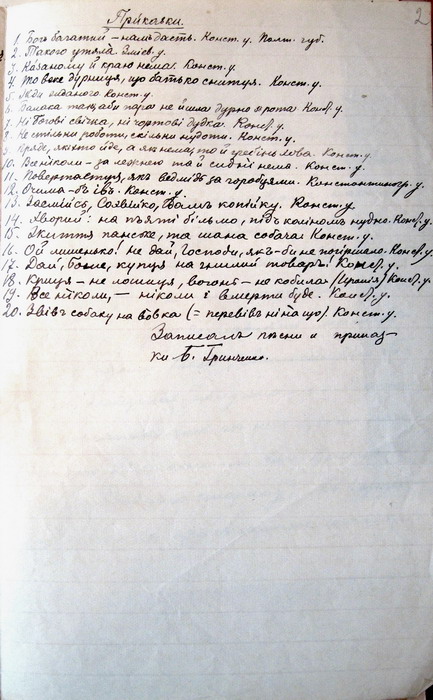 2
Приказки.
1. Богъ багатий – намъ дасть. Конст. у. Полт. губ.
2. Такого утяла. Зміев. у.
3. Казаному й краю нема. Конст. у.
4. То веке дурниця, що батько снитця. Конст. у.
5. Жди Конст. у.
6. Балака такъ, аби пара не йшла дурно з рота. Конст. у.
7. Ні Богові свічка, ні чортові дудка. Конст. у.
8. Не стільки роботи, скільки нудоти. Конст. у.
9. Пряде, як нитка йде, а як нема, то й гребінь лова. Конст. у.
10. Все ніколи – за лежнею та й сидні нема. Конст. у.
11. Повертаетця, якъ ведмідь за горобцями. Константиногр. у.
12. Очима – бъ івъ. Конст. у.
13. Засмійсь, Солвійко, дамъ копійку. Конст. у.
14. Хворий: на пъяті більмо, підъ коліномъ нудно. Конст. у.
15. Життя панске, та шана собача. Конст. у.
16. Ой лишенько! не дай, Господи, якъ-би не поспішало. Конст. у.
17. Дай, Боже, купця на гнилий товаръ! Конст. у.
18. Криця – не лошиця, вогонь – не кобила /Іронія/ Конст. у.
19. Все ніколи, – ніколи і вмерти буде. Конст. у.
20. Звівъ собаку на вовка (= перевівъ нінащо). Конст. у.
Записалъ песни и приказ-
ки Б. Гринченко.